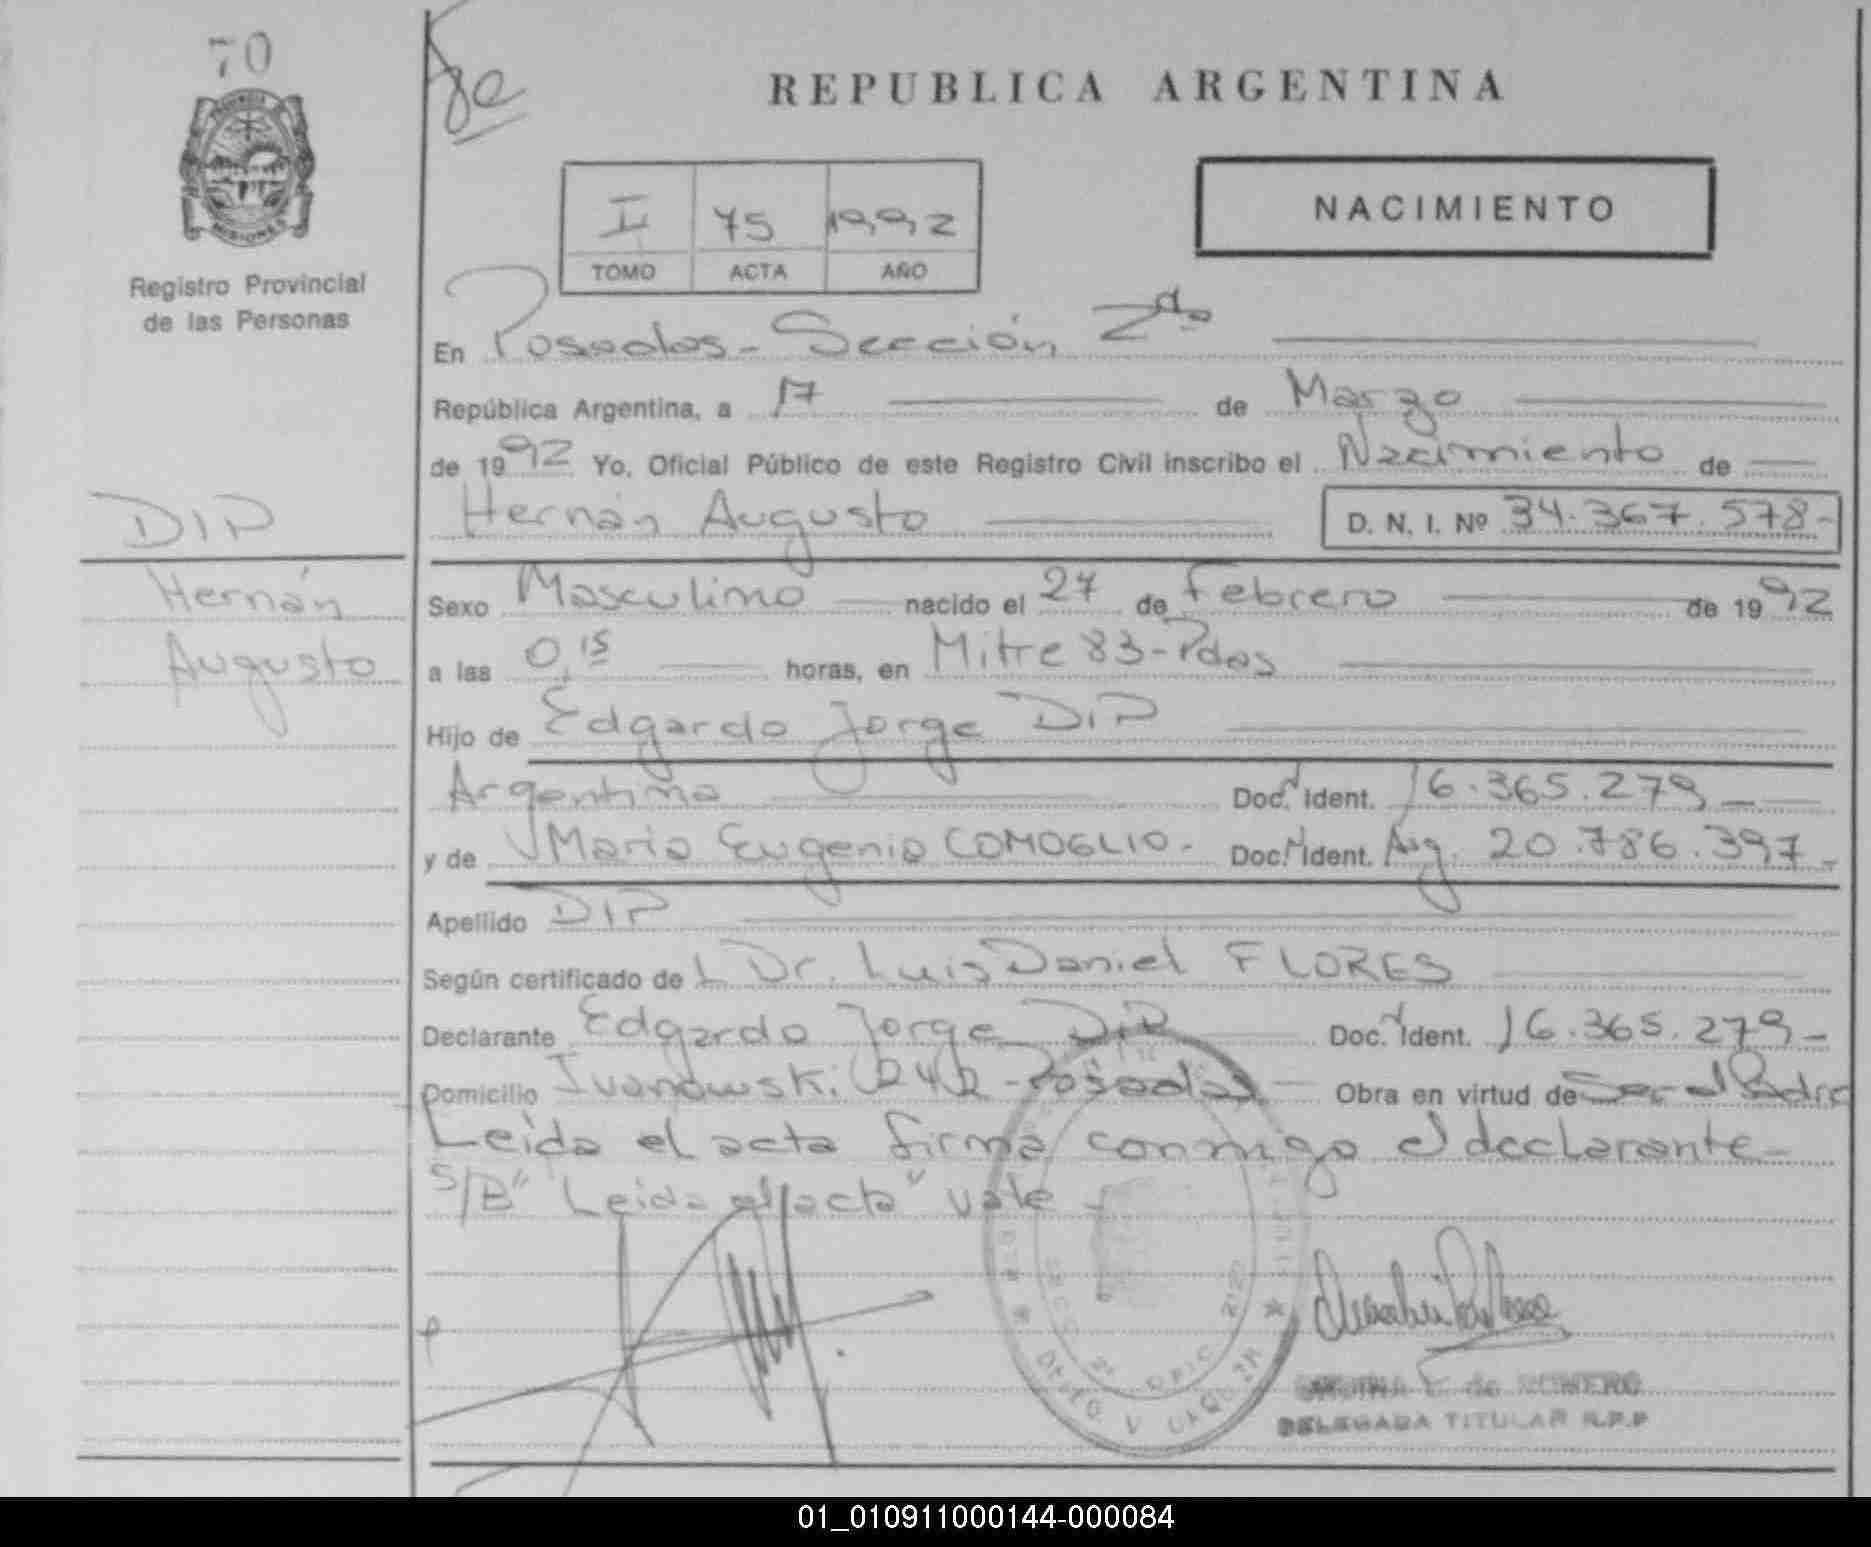 70
REPUBLICA ARGENTINA
MISIONES
Registro Provincial
de las Personas
I 75 1992
TOMO ACTA AÑO
NACIMIENTO
En Posadas - Sección 2da
República Argentina, a 17 de Marzo
de 1992 Yo, Oficial Público de este Registro Civil inscribo el Nacimiento de
Hernán Augusto D. N. I. Nº 34.367.578-
DIP
Hernán
Augusto
Sexo Masculino nacido el 27 de Febrero de 1992
a las 0,15 horas, en Mitre 83-Pdas
Hijo de Edgardo Jorge DIP
Argentina Doc. Ident. 16.365.279
y de María Eugenia COMOGLIO- Doc. Ident. Arg. 20.786.397-
Apellido DIP
Según certificado de L Dr. Luis Daniel FLORES
Declarante Edgardo Jorge DIP Doc. Ident. 16.365.279-
Domicilio Ivanowski 242 - Posadas Obra en virtud de Ser el Padre
Leída el acta firma conmigo el declarante-
S/B" "Leida el acta" vale-
DELEGADA TITULAR R.P.P
01_010911000144-000084